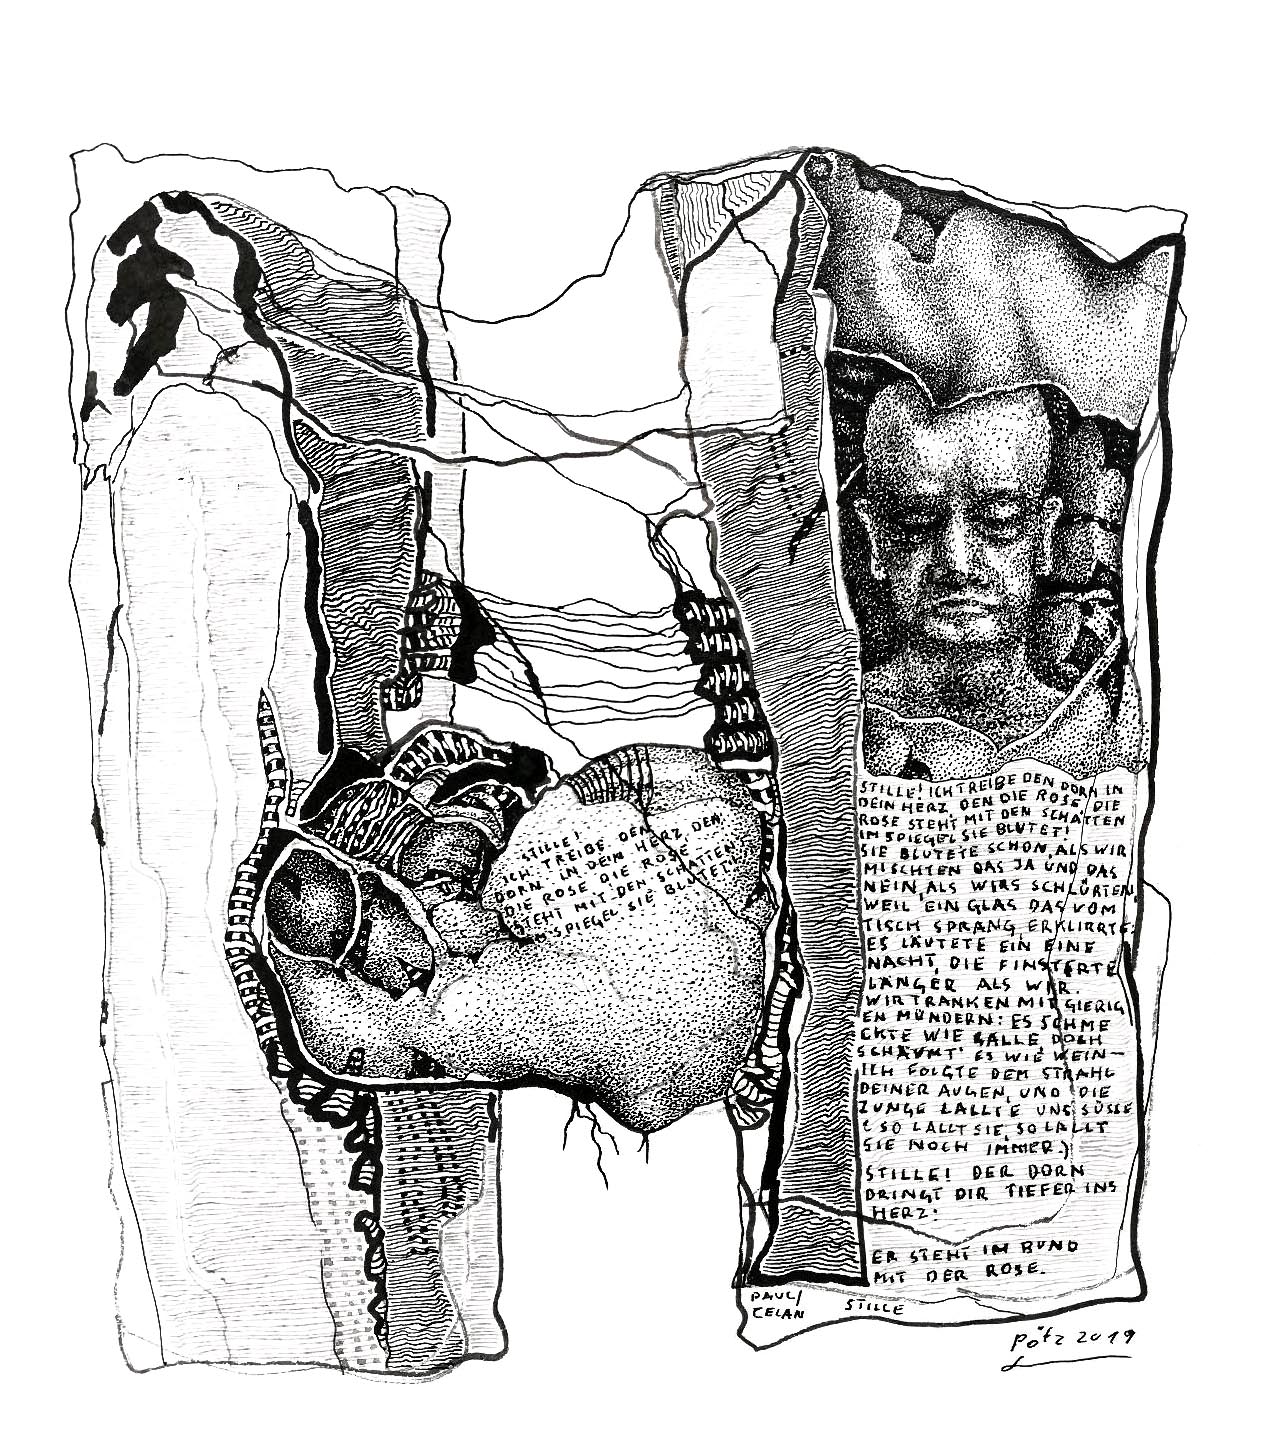 STILLE!
ICH TREIBE DEN
DORN IN DEIN HERZ DEN
DIE ROSE DIE ROSE
STEHT MIT DEN SCHATTEN
IM SPIEGEL SIE BLUTET!
STILLE! ICH TREIBE DEN DORN IN
DEIN HERZ DEN DIE ROSE, DIE
ROSE STEHT MIT DEN SCHATTEN
IM SPIEGEL SIE BLUTET!
SIE BLUTETE SCHON, ALS WIR
MISCHTEN DAS JA UND DAS
NEIN, ALS WIRS SCHLÜRTEN,
WEIL EIN GLAS DAS VOM
TISCH SPRANG, ERKLIRRTE:
ES LÄUTETE EIN EINE
NACHT, DIE FINSTERTE
LÄNGER ALS WIR.
WIR TRANKEN MIT GIERIG
EN MÜNDERN: ES SCHME
CKTE WIE GALLE DOCH
SCHÄUMT' ES WIE WEIN—
ICH FOLGTE DEM STRAHL
DEINER AUGEN, UND DIE
ZUNGE LALLTE UNS SÜSSE
(SO LALLT SIE, SO LALLT
SIE NOCH IMMER.)
STILLE! DER DORN
DRINGT DIR TIEFER INS
HERZ:
ER STEHT IM BUND
MIT DER ROSE.
PAUL/
CELAN
STILLE
Pötz 2019